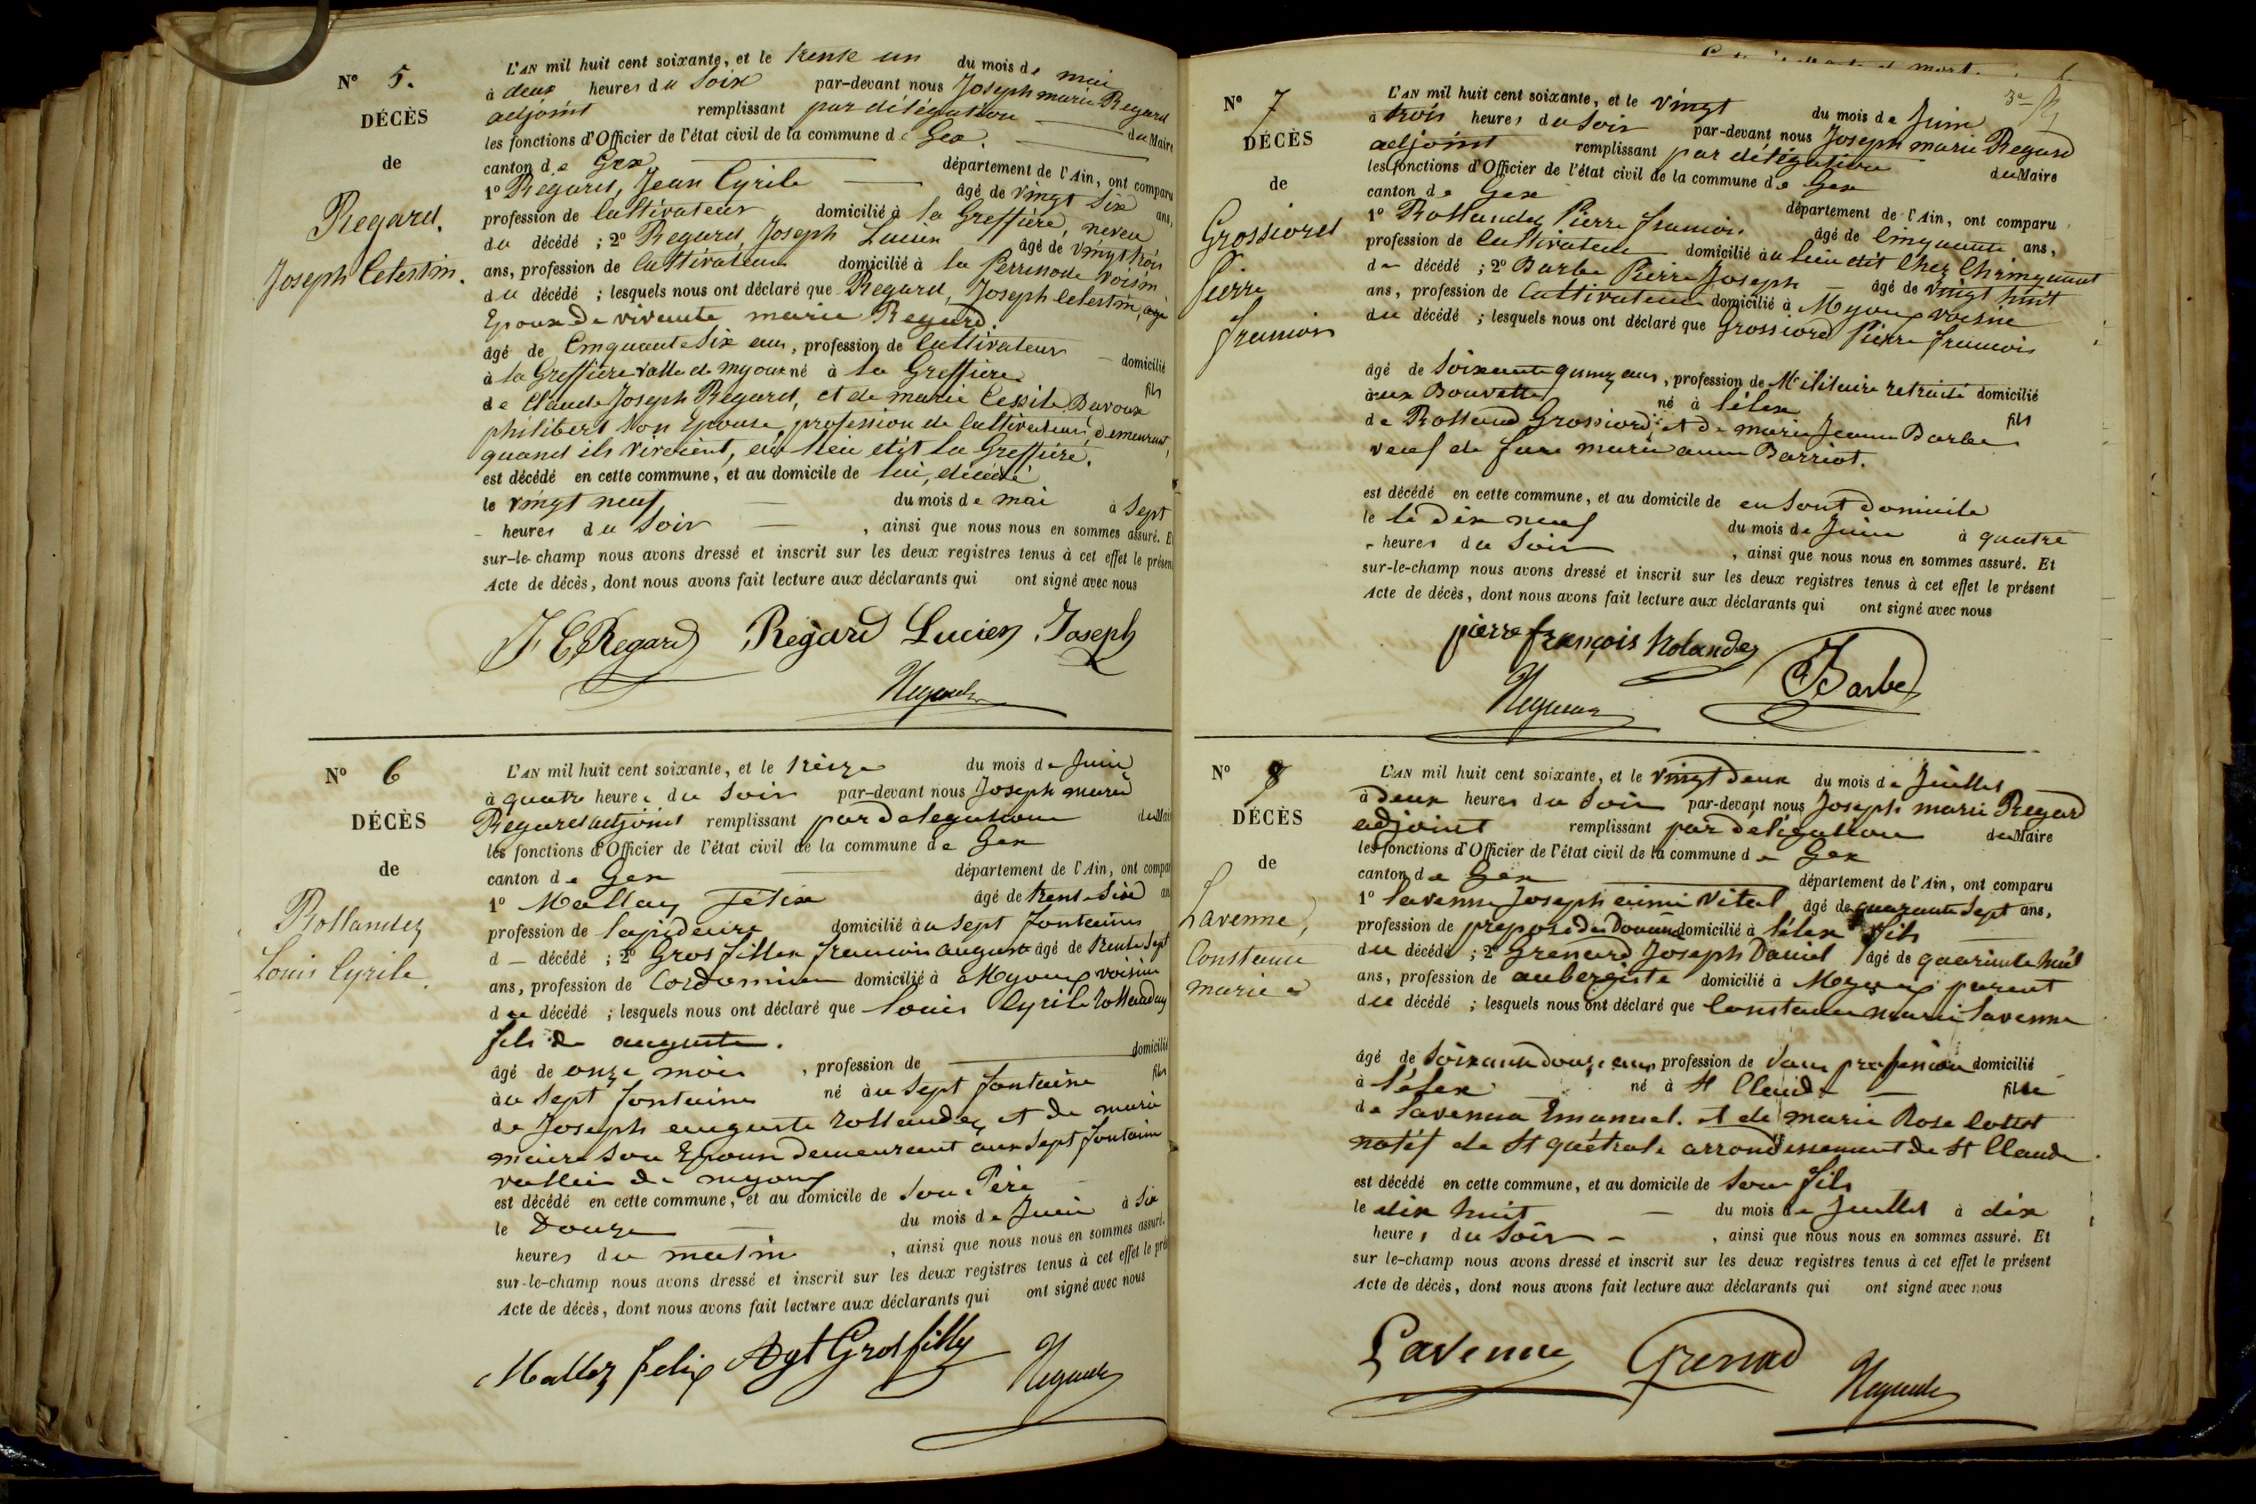 N° 5.
DÉCÈS
de
Regard,
Joseph Celestin.
L'AN mil huit cent soixante, et le trente un du mois de mai
à deux heures du Soir par-devant nous Joseph marie Regard
adjoint remplissant par délégation du Maire
les fonctions d'Officier de l'état civil de la commune de Gex.
canton de Gex département de l'Ain, ont comparu
1° Regard, Jean Cyrile âgé de vingt Six ans,
profession de Cultivateur domicilié à la Greffière, neveu
du décédé ; 2° Regard, Joseph Lucien âgé de vingt trois
ans, profession de Cultivateur domicilié à la Perrinode voisin
du décédé ; lesquels nous ont déclaré que Regard, Joseph Celestin,
Epoux de vivante marie Regard.
âgé de Cinquante Six ans, profession de Cultivateur domicilié
à la Greffière vallée de myoux né à la Greffière fils
de Claude Joseph Regard, et de marie Cessile Duvoux
philibert Son Epouse, profession de Cultivateur, demeurant,
quand ils vivoient, au lieu dit la Greffière.
est décédé en cette commune, et au domicile de lui, décédé
le vingt neuf du mois de mai à Sept
heures du Soir , ainsi que nous nous en sommes assuré. Et
sur-le-champ nous avons dressé et inscrit sur les deux registres tenus à cet effet le présent
Acte de décès, dont nous avons fait lecture aux déclarants qui ont signé avec nous
J C Regard Regard Lucien Joseph
N° 6
DÉCÈS
de
Rollandez
Louis Cyrile.
L'AN mil huit cent soixante, et le treize du mois de Juin
à quatre heures du Soir par-devant nous Joseph marie
Regard adjoint remplissant par Delegation du Mai
les fonctions d'Officier de l'état civil de la commune de Gex
canton de Gex département de l'Ain, ont compa
1° Mallay Félix âgé de trent Six an
profession de lapideire domicilié au Sept fontaines
d — décédé ; 2° Gros fillex francois auguste âgé de trente Sept
ans, profession de Cordonnier domicilié à Myoux voisin
du décédé ; lesquels nous ont déclaré que Louis Cyrile Rollandez
fils de auguste.
âgé de onze mois , profession de domicilié
au Sept fontaines né au Sept fontaine fils
de Joseph auguste Rollandez et de marie
maire Son Epouse demeurant aux Sept fontaine
vallée de myoux
est décédé en cette commune, et au domicile de Son Père
le Douze du mois de Juin à Six
heures du matin , ainsi que nous nous en sommes assuré.
sur-le-champ nous avons dressé et inscrit sur les deux registres tenus à cet effet le pré
Acte de décès, dont nous avons fait lecture aux déclarants qui ont signé avec nous
Mallez felix Agt Grosfilly
N° 7
DÉCÈS
de
Grossiord
Pierre
francois
L'AN mil huit cent soixante, et le vingt du mois de Juin
à trois heures du Soir par-devant nous Joseph marie Regard
adjoint remplissant par délégation du Maire
les fonctions d'Officier de l'état civil de la commune de Gex
canton de Gex département de l'Ain, ont comparu
1° Rollandez Pierre francois âgé de Cinquante ans,
profession de Cultivateur domicilié au lieu dit Chez
de décédé ; 2° Barbe Pierre Joseph — âgé de vingt huit
ans, profession de Cultivateur domicilié à Myoux voisin
du décédé ; lesquels nous ont déclaré que Grossiord Pierre francois
âgé de Soixante quinz ans, profession de Militaire retraité domicilié
aux Bouvette né à Lélex fils
de Rolland Grossiord et de marie Jeanne Barbe
veuf de fue marie anne Barriot.
est décédé en cette commune, et au domicile de en Sont Domicile
le le Dix neuf du mois de Juin à quatre
heures du Soir , ainsi que nous nous en sommes assuré. Et
sur-le-champ nous avons dressé et inscrit sur les deux registres tenus à cet effet le présent
Acte de décès, dont nous avons fait lecture aux déclarants qui ont signé avec nous
pierre françois Rolandez
J Barbe
N° 8
DÉCÈS
de
Lavenne,
Constance
marie
L'AN mil huit cent soixante, et le vingt Deux du mois de Juillet
à Deux heures du Soir par-devant nous Joseph marie Regard
adjoint remplissant par Délégation du Maire
les fonctions d'Officier de l'état civil de la commune de Gex
canton de Gex département de l'Ain, ont comparu
1° Lavenne Joseph aimé Vital âgé de quarante Sept ans,
profession de preposé des Douane domicilié à Lélex fils
du décédé ; 2° Grenard Joseph Daniel âgé de quarante huit
ans, profession de aubergiste domicilié à Myoux parent
du décédé ; lesquels nous ont déclaré que Constance marie Lavenne
âgé de Soixante Douze ans, profession de Sans profession domicilié
à Lélex né à St Claude fille
de Lavenna Emanuel. et de marie Rose Cottet
natif de St arrondissement de St Claude.
est décédé en cette commune, et au domicile de Son fils
le dix huit du mois de Juillet à dix
heures du Soir , ainsi que nous nous en sommes assuré. Et
sur le-champ nous avons dressé et inscrit sur les deux registres tenus à cet effet le présent
Acte de décès, dont nous avons fait lecture aux déclarants qui ont signé avec nous
Lavenne Grenard